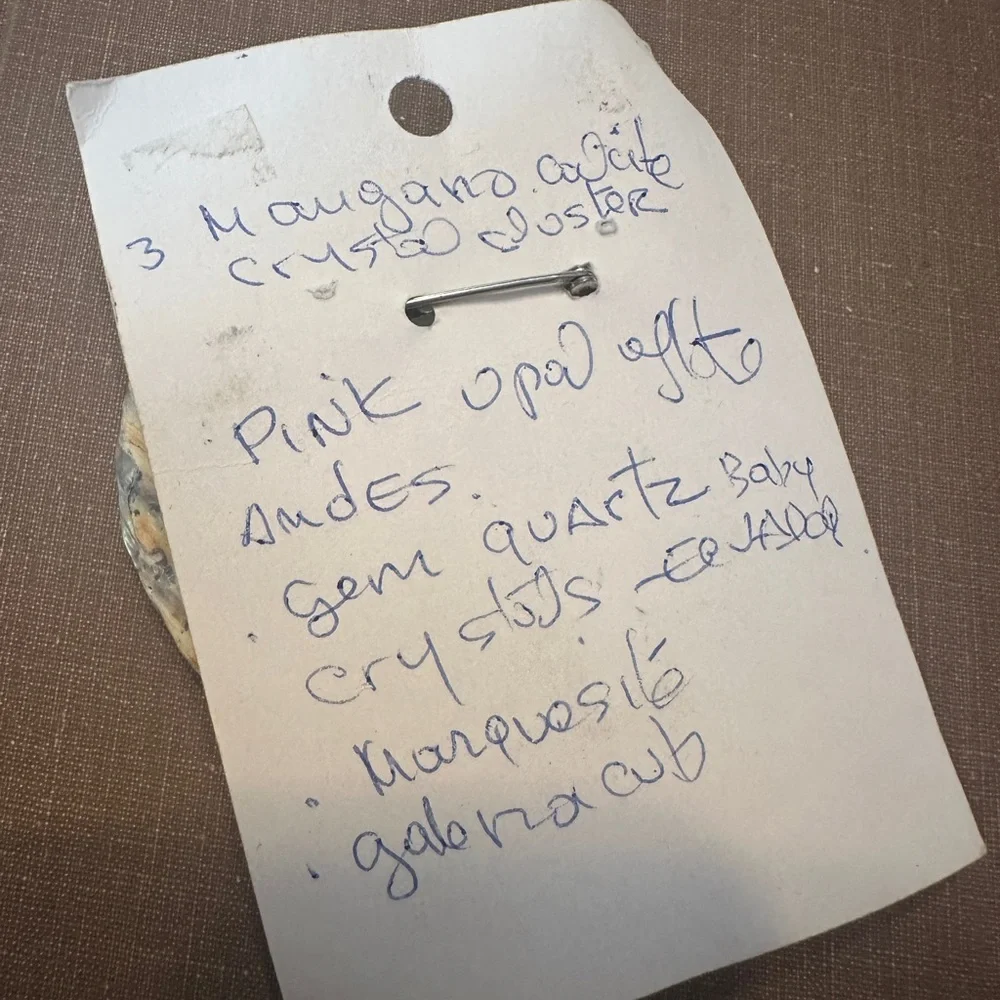 3 Mangano calcite
crystal cluster
PiNK opal of the
AndES.
. gem quARtz Baby
crystals - EQUADOR.
. Marquesite
. galena cub